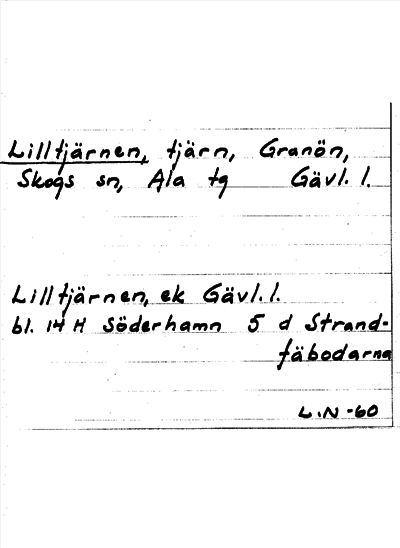 Lilltjärnen, tjärn, Granön,
Skogs sn, Ala tg Gävl. l.
Lilltjärnen, ek Gävl. l.
bl. 14 H Söderhamn 5 d Strand-
fäbodarna
L.N -60